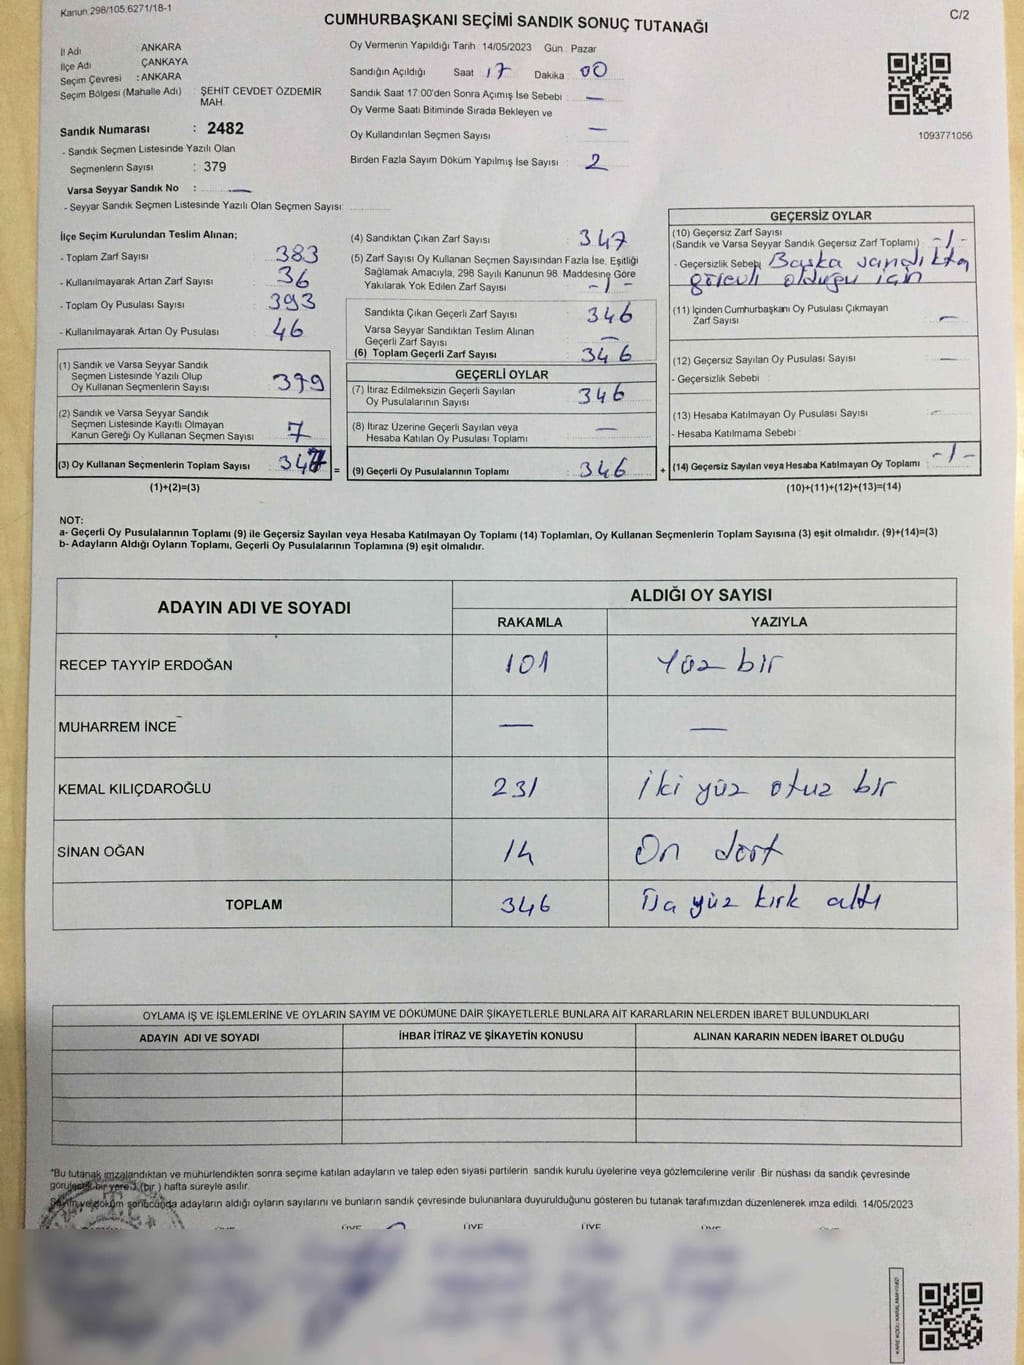 Kanun:298/105,6271/18-1
C/2
CUMHURBAŞKANI SEÇİMİ SANDIK SONUÇ TUTANAĞI
İl Adı ANKARA
İlçe Adı ÇANKAYA
Seçim Çevresi : ANKARA
Seçim Bölgesi (Mahalle Adı) : ŞEHİT CEVDET ÖZDEMİR
MAH.
Sandık Numarası : 2482
- Sandık Seçmen Listesinde Yazılı Olan
Seçmenlerin Sayısı : 379
Varsa Seyyar Sandık No : —
- Seyyar Sandık Seçmen Listesinde Yazılı Olan Seçmen Sayısı:
Oy Vermenin Yapıldığı Tarih : 14/05/2023 Gün : Pazar
Sandığın Açıldığı Saat 17 Dakika : 00
Sandık Saat 17:00'den Sonra Açımış İse Sebebi : —
Oy Verme Saati Bitiminde Sırada Bekleyen ve
Oy Kullandırılan Seçmen Sayısı : —
Birden Fazla Sayım Döküm Yapılmış İse Sayısı : 2
1093771056
İlçe Seçim Kurulundan Teslim Alınan;
- Toplam Zarf Sayısı : 383
- Kullanılmayarak Artan Zarf Sayısı : 36
- Toplam Oy Pusulası Sayısı : 393
- Kullanılmayarak Artan Oy Pusulası : 46
(1) Sandık ve Varsa Seyyar Sandık
Seçmen Listesinde Yazılı Olup
Oy Kullanan Seçmenlerin Sayısı : 379
(2) Sandık ve Varsa Seyyar Sandık
Seçmen Listesinde Kayıtlı Olmayan
Kanun Gereği Oy Kullanan Seçmen Sayısı : 7
(3) Oy Kullanan Seçmenlerin Toplam Sayısı : 347
(1)+(2)=(3)
(4) Sandıktan Çıkan Zarf Sayısı : 347
(5) Zarf Sayısı Oy Kullanan Seçmen Sayısından Fazla İse, Eşitliği
Sağlamak Amacıyla, 298 Sayılı Kanunun 98. Maddesine Göre
Yakılarak Yok Edilen Zarf Sayısı : -1-
Sandıkta Çıkan Geçerli Zarf Sayısı : 346
Varsa Seyyar Sandıktan Teslim Alınan
Geçerli Zarf Sayısı : —
(6) Toplam Geçerli Zarf Sayısı : 346
GEÇERLİ OYLAR
(7) İtiraz Edilmeksizin Geçerli Sayılan
Oy Pusulalarının Sayısı : 346
(8) İtiraz Üzerine Geçerli Sayılan veya
Hesaba Katılan Oy Pusulası Toplamı : —
= (9) Geçerli Oy Pusulalarının Toplamı : 346 +
GEÇERSİZ OYLAR
(10) Geçersiz Zarf Sayısı
(Sandık ve Varsa Seyyar Sandık Geçersiz Zarf Toplamı) : -1-
- Geçersizlik Sebebi : Başka sandıkta
görevli olduğu için
(11) İçinden Cumhurbaşkanı Oy Pusulası Çıkmayan
Zarf Sayısı : —
(12) Geçersiz Sayılan Oy Pusulası Sayısı : —
- Geçersizlik Sebebi :
(13) Hesaba Katılmayan Oy Pusulası Sayısı : —
- Hesaba Katılmama Sebebi :
(14) Geçersiz Sayılan veya Hesaba Katılmayan Oy Toplamı : -1-
(10)+(11)+(12)+(13)=(14)
NOT:
a- Geçerli Oy Pusulalarının Toplamı (9) ile Geçersiz Sayılan veya Hesaba Katılmayan Oy Toplamı (14) Toplamları, Oy Kullanan Seçmenlerin Toplam Sayısına (3) eşit olmalıdır. (9)+(14)=(3)
b- Adayların Aldığı Oyların Toplamı, Geçerli Oy Pusulalarının Toplamına (9) eşit olmalıdır.
ADAYIN ADI VE SOYADI
ALDIĞI OY SAYISI
RAKAMLA YAZIYLA
RECEP TAYYİP ERDOĞAN 101 Yüz bir
MUHARREM İNCE — —
KEMAL KILIÇDAROĞLU 231 İki yüz otuz bir
SİNAN OĞAN 14 On dört
TOPLAM 346 yüz kırk altı
OYLAMA İŞ VE İŞLEMLERİNE VE OYLARIN SAYIM VE DÖKÜMÜNE DAİR ŞİKAYETLERLE BUNLARA AİT KARARLARIN NELERDEN İBARET BULUNDUKLARI
ADAYIN ADI VE SOYADI İHBAR İTİRAZ VE ŞİKAYETİN KONUSU ALINAN KARARIN NEDEN İBARET OLDUĞU
*Bu tutanak imzalandıktan ve mühürlendikten sonra seçime katılan adayların ve talep eden siyasi partilerin sandık kurulu üyelerine veya gözlemcilerine verilir. Bir nüshası da sandık çevresinde
görülecek bir yere 1 (bir ) hafta süreyle asılır.
Sayım ve döküm sonucunda adayların aldığı oyların sayılarını ve bunların sandık çevresinde bulunanlara duyurulduğunu gösteren bu tutanak tarafımızdan düzenlenerek imza edildi. 14/05/2023
ÜYE ÜYE ÜYE ÜYE